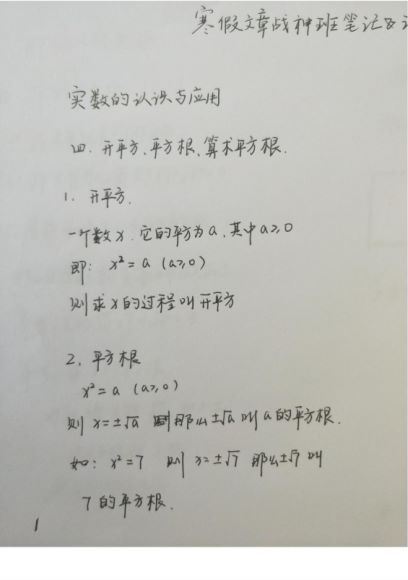 寒假文章战神班笔记&
实数的认识与应用
四.开平方、平方根、算术平方根.
1. 开平方.
一个数x.它的平方为a,其中a≥0
即: x²=a (a≥0)
则求x的过程叫开平方
2. 平方根
x²=a (a≥0)
则 x=±√a 那么±√a 叫a的平方根.
如: x²=7 则 x=±√7 那么±√7 叫
7的平方根.
1